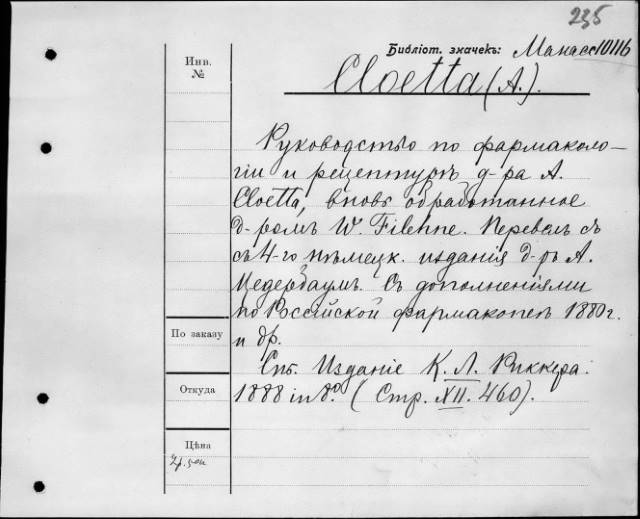 235
Библіот. значекъ: Манасс 10116
Инв.
№
Cloetta (A.).
Руководство по фармаколо-
гіи и рецептурѣ д-ра А.
Cloetta, вновь обработанное
д-ромъ W. Filehne. Перевелъ съ
съ 4-го нѣмецк. изданія д-ръ А.
Цедербаумъ. Съ дополненіями
по Россійской фармакопеѣ 1880 г.
и др.
По заказу
Спб. Изданіе К. Л. Риккера.
Откуда
1888 in 8º. (Стр. XII. 460).
Цѣна
2р. 50к